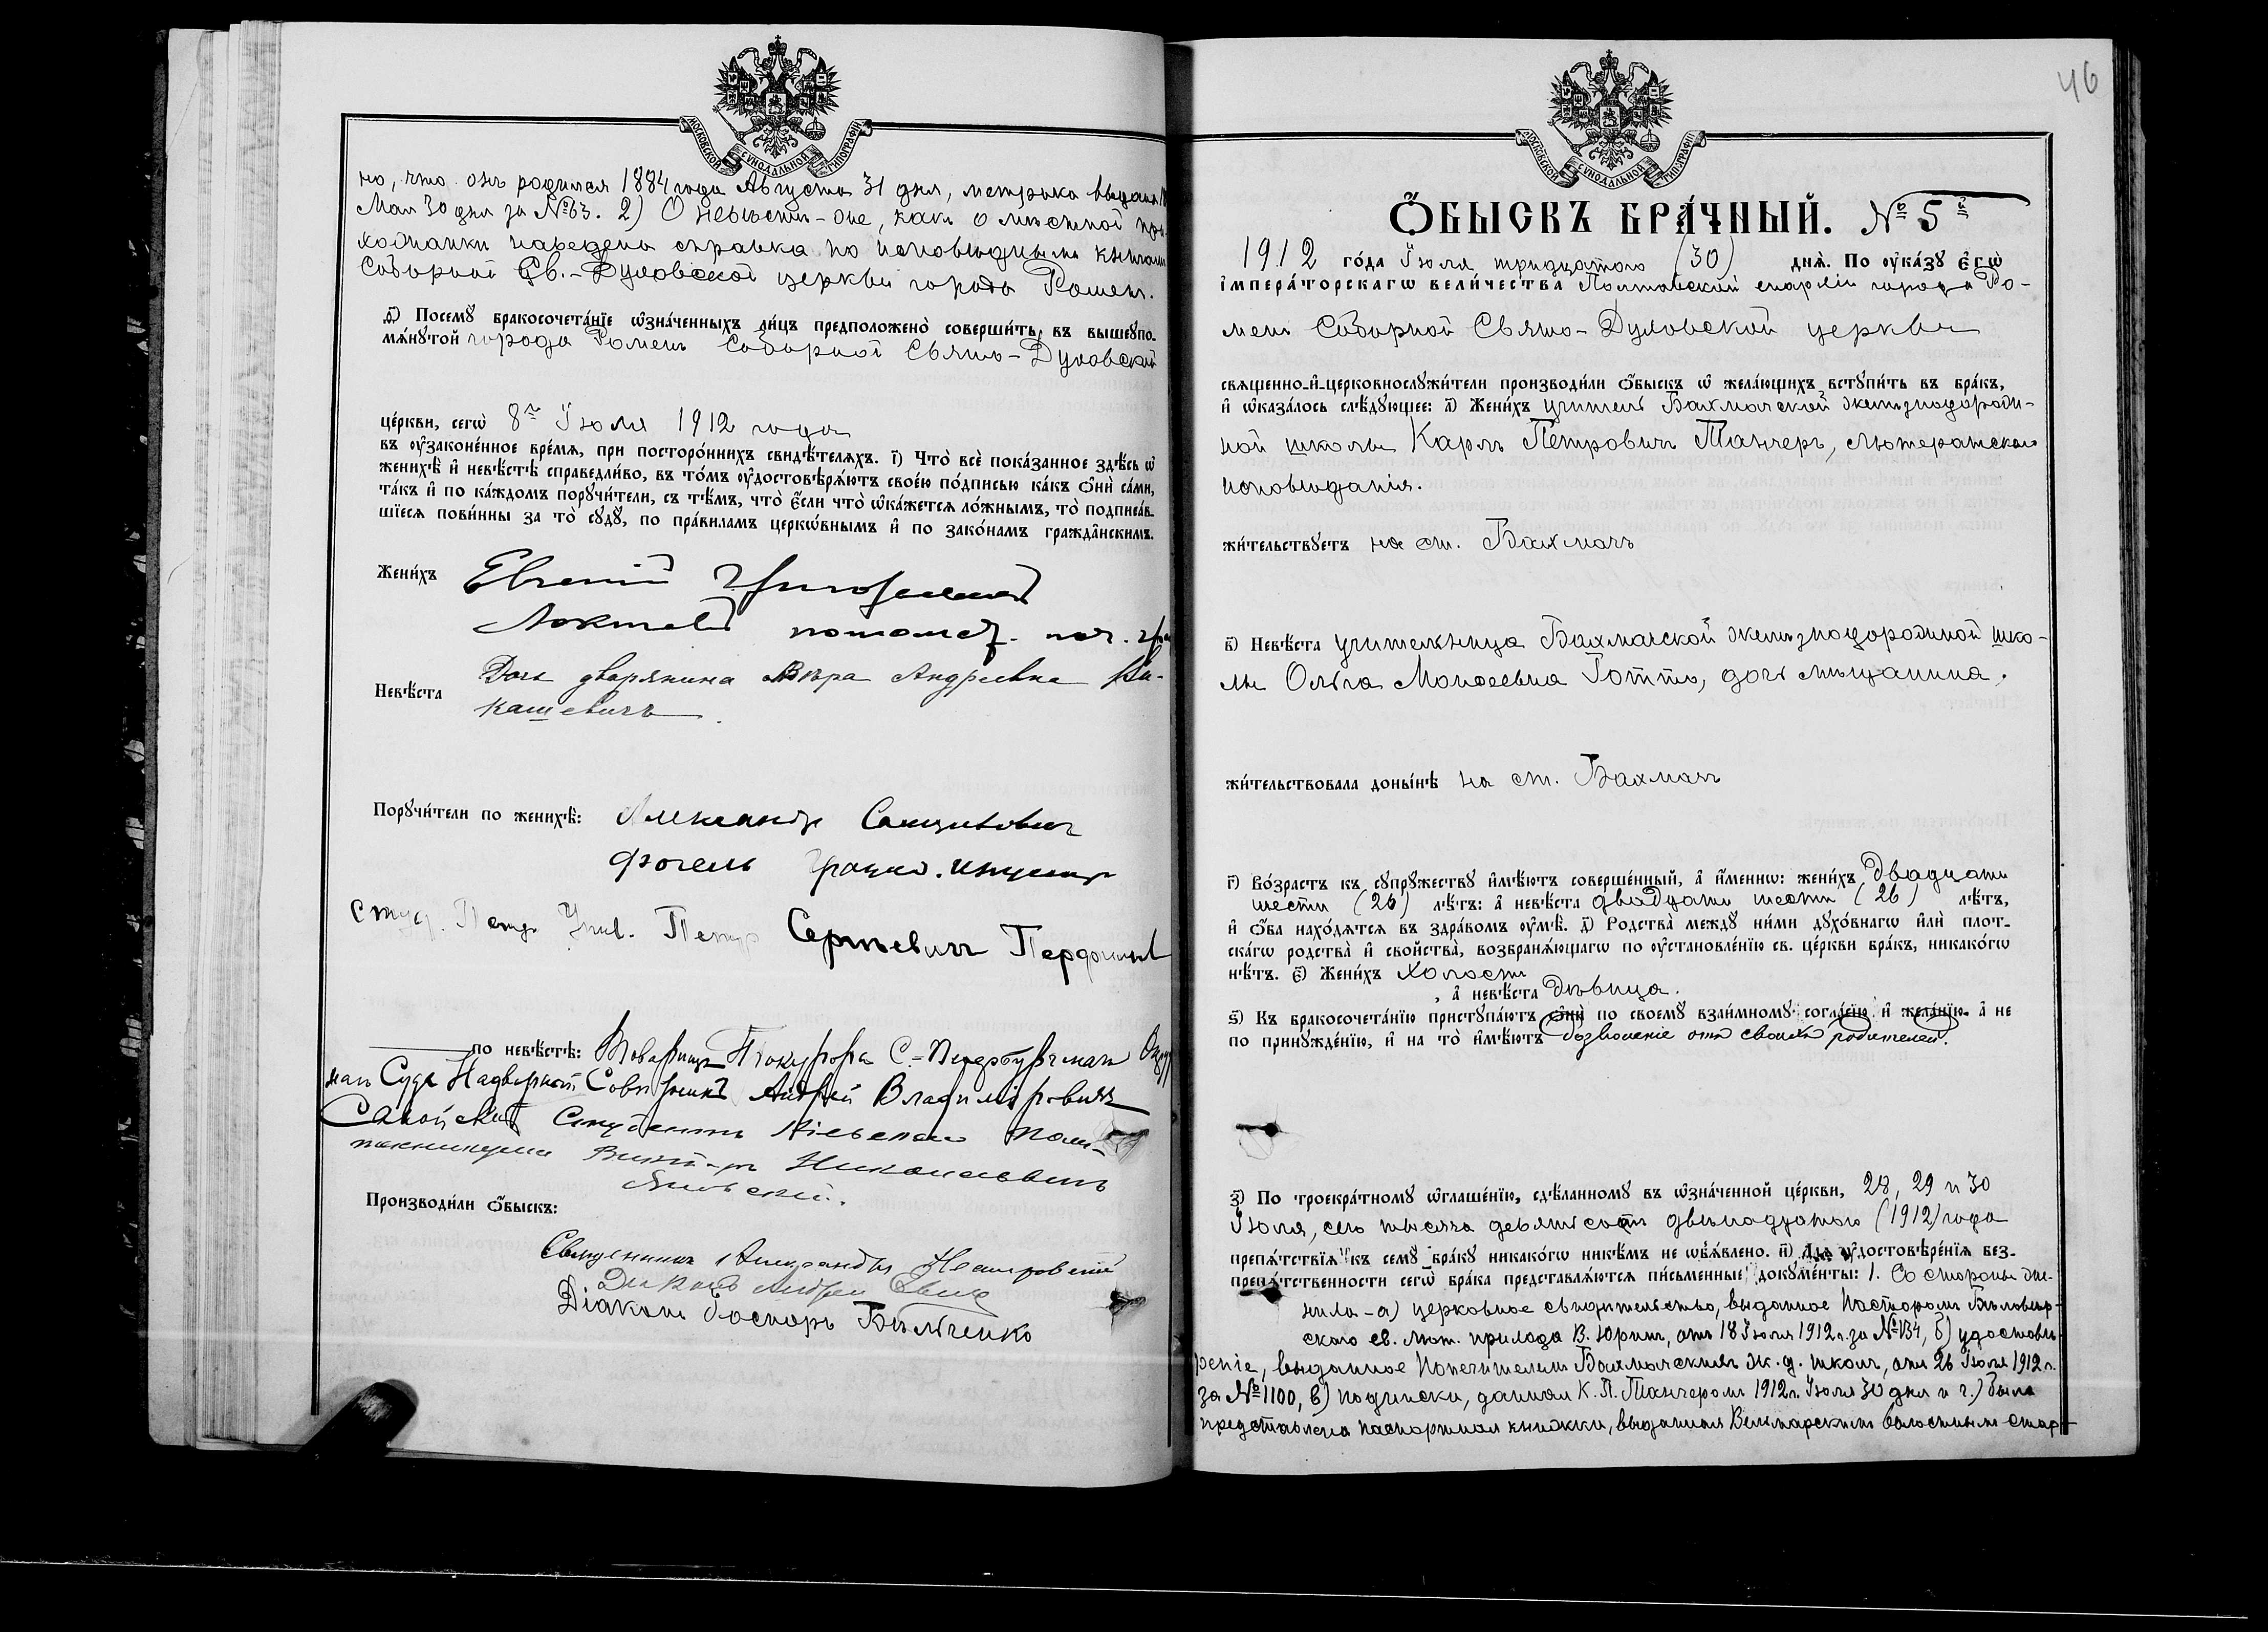 МОСКОВСКОЙ СѴНОДАЛЬНОЙ ТИПОГРАФІИ
но, что онъ родился 1884 года Августа 31 дня, метрика выдана
Мая 30 дня за № 63. 2) О невѣстѣ - оне, какъ о мѣстной при-
хожанки наведена справка по исповѣднымъ книгамъ
Соборной Св.-Духовской церкви города Роменъ.
д҃) Посемꙋ бракосочета́нїе ѡ҆зна́ченныхъ ли́цъ предположено̀ соверши́ть въ вышеꙋпо-
мѧ́нꙋтой города Роменъ Соборной Свято-Духовской
це́ркви, сегѡ̀ 8го Іюля 1912 года
въ ᲂу҆законе́нное вре́мѧ, при посторо́ннихъ свидѣ́телѧхъ. і҃) Что̀ всѐ пока́занное здѣ́сь ѡ҆
женихѣ̀ и҆ невѣ́стѣ справедли́во, въ то́мъ ᲂу҆достовѣрѧ́ютъ свое́ю по́дписью ка́къ ѻ҆нѝ са́ми,
та́къ и҆ по ка́ждомъ порꙋчи́тели, съ тѣ́мъ, что̀ є҆́сли что̀ ѡ҆ка́жетсѧ ло́жнымъ, то̀ подписа́в-
шїесѧ пови́нны за то̀ сꙋдꙋ̀, по пра́виламъ церкѡ́внымъ и҆ по зако́намъ гражда̑нскимъ.
Жени́хъ Евгеній Григорьевичъ
Локтевъ потомст. поч. гра
Невѣ́ста Дочь дворянина Вѣра Андреевна
кашевичъ.
Порꙋчи́тели по женихѣ̀: Александръ
Фогель гражд. инженеръ
Студ. Петр. Унив. Петръ Сергѣевичъ
по невѣ́стѣ: Товарищъ Прокурора С.-Петербургскаго Окру
наго Суда Надворный Совѣтникъ Андрей Владиміровичъ
Студентъ Кіевскаго Поли-
техникума Николаевичъ
Производи́ли ѻ҆́быскъ:
Священникъ Александръ
Діаконъ Андрей
Діаконъ Бѣльченко
46
МОСКОВСКОЙ СѴНОДАЛЬНОЙ ТИПОГРАФІИ
Ѻ҆́БЫСКЪ БРА́ЧНЫЙ. № 5й
1912 го́да Іюля тридцатаго (30) днѧ̀. По ᲂу҆ка́зꙋ є҆гѡ̀
і҆мпера́торскагѡ вели́чества Полтавской епархіи города Ро-
менъ Соборной Свято-Духовской церкви
свѧщенно-и҆-церковнослꙋжи́тели производи́ли ѻ҆́быскъ ѡ҆ жела́ющихъ встꙋпи́ть въ бра́къ,
и҆ ѡ҆каза́лось слѣ́дꙋющее: а҃) Жени́хъ учитель Бахмачской желѣзнодорож-
ной школы Карлъ Петровичъ Танчеръ, лютеранскаго
исповѣданія.
жи́тельствꙋетъ на ст. Бахмачъ
в҃) Невѣ́ста учительница Бахмачской желѣзнодорожной шко-
лы Ольга Моисеевна Готтъ, дочь мѣщанина.
жи́тельствовала доны́нѣ на ст. Бахмачъ
г҃) Во́зрастъ къ сꙋпрꙋ́жествꙋ и҆мѣ́ютъ соверше́нный, а҆ и҆́меннѡ: жени́хъ двадцати
шести (26) лѣ́тъ: а҆ невѣ́ста двадцати шести (26) лѣ́тъ,
и҆ ѻ҆́ба нахо́дѧтсѧ въ здра́вомъ ᲂу҆мѣ̀. д҃) Родства̀ междꙋ̀ ни́ми дꙋхо́внагѡ и҆лѝ плот-
ска́гѡ родства̀ и҆ свойства̀, возбранѧ́ющагѡ по ᲂу҆становле́нїю св. це́ркви бра́къ, никако́гѡ
нѣ́тъ. є҃) Жени́хъ холостъ
, а҆ невѣ́ста дѣвица.
ѕ҃) Къ бракосочета́нїю пристꙋпа́ютъ ѻ҆нѝ по своемꙋ̀ взаи́мномꙋ согла́сїю и҆ жела́нїю, а҆ не
по принꙋжде́нїю, и҆ на то̀ и҆мѣ́ютъ дозволеніе отъ своихъ родителей.
з҃) По троекра́тномꙋ ѡ҆глаше́нїю, сдѣ́ланномꙋ въ ѡ҆зна́ченной це́ркви, 28, 29 и 30
Іюля, сего тысяча девятьсотъ двѣнадцатаго (1912) года
препѧ́тствїѧ къ семꙋ̀ бра́кꙋ никако́гѡ никѣ́мъ не ѡ҆б̾ѧ́влено. и҃) Длѧ ᲂу҆достовѣре́нїѧ без-
препѧ́тственности сегѡ̀ бра́ка представлѧ́ютсѧ пи́сьменные докꙋме́нты: 1. Со стороны же-
ниха - а) церковное свидѣтельство, выданное Пасторомъ Бѣловѣр-
скаго ев. лют. прихода В. Юргитъ, отъ 18 Іюля 1912 г. за № 134, б) удостовѣ-
реніе, выданное Попечителемъ Бахмачскихъ ж. д. школъ, отъ 26 Іюля 1912 г.
за № 1100, в) подписка, данная К. П. Танчеромъ 1912 г. Іюля 30 дня и г.) была
представлена паспортная книжка, выданная Вельмарскимъ волостнымъ стар-